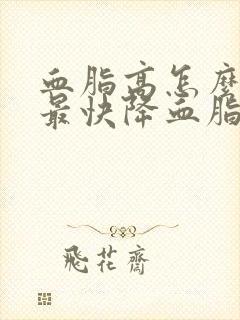 血脂高怎麽
最快降血脂
飛花齋